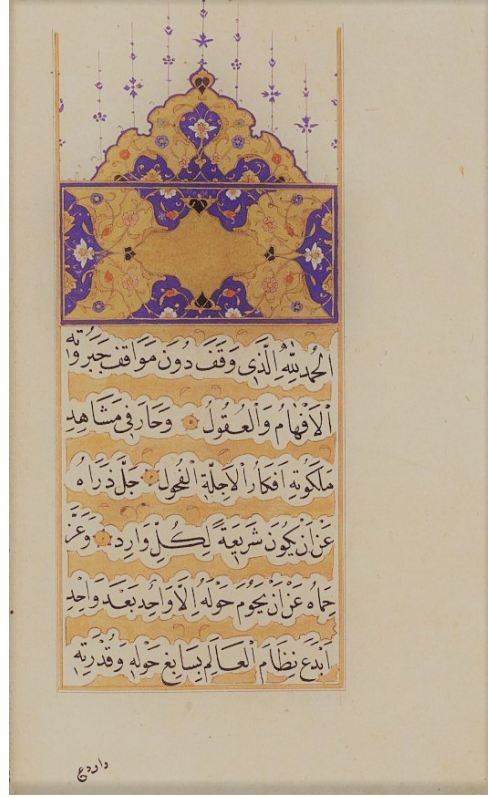 الحمد لله الذى وقف دون مواقف جبروته
الافهام والعقول وحار فى مشاهد
ملكوته افكار الاجلة الفحول جل ذراه
عن ان يكون شريعة لكل وارد وعز
حماه عن ان يحوم حوله الا واحد بعد واحد
ابدع نظام العالم بسابغ حوله وقدرته